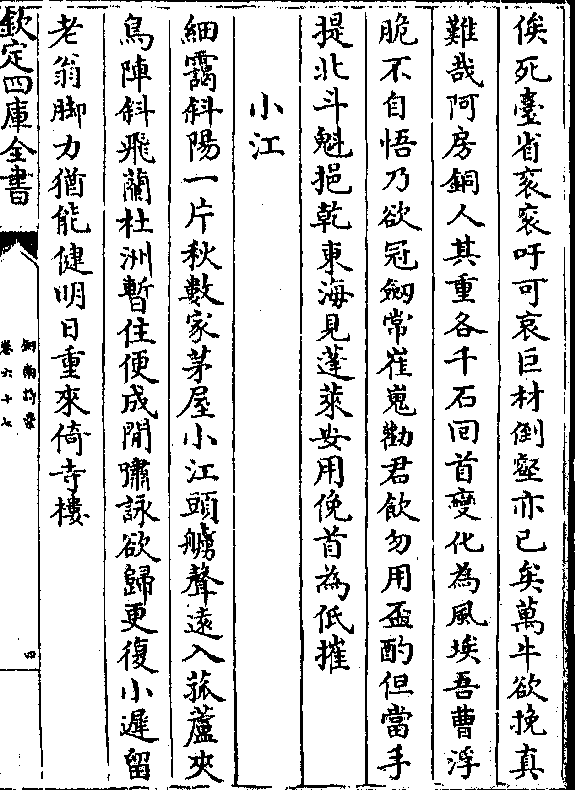 俟死臺省衮衮吁可哀巨材倒壑亦已矣萬牛欲挽真
難哉阿房銅人其重各千石回首變化為風埃吾曹浮
脆不自悟乃欲冠劒常崔嵬勸君飲勿用盃酌但當手
提北斗魁挹乾東海見蓬萊安用俛首為低摧
小江
細靄斜陽一片秋數家茅屋小江頭艣聲遠入菰蘆夾
鳥陣斜飛蘭杜洲暫住便成閒嘯詠欲歸更復小遲留
老翁脚力猶能健明日重來倚寺樓
欽定四庫全書
劒南詩槀
卷六十七
四